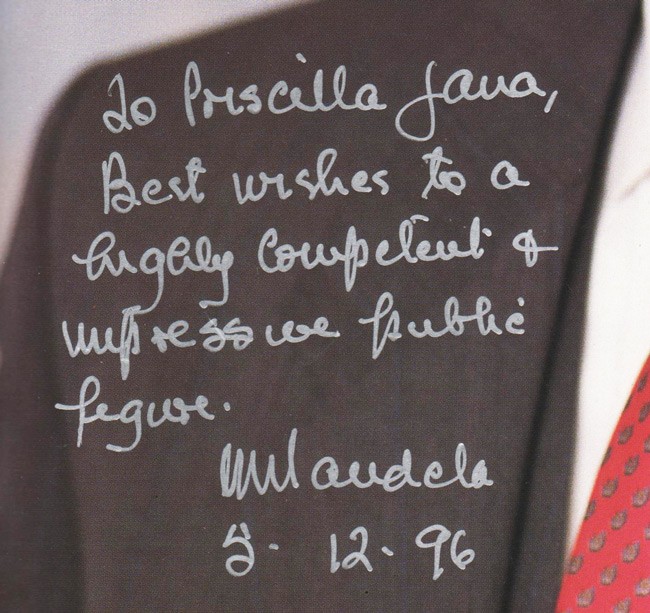 To Priscilla Jana,
Best wishes to a
highly competent &
impressive public
figure.
NMandela
5. 12. 96